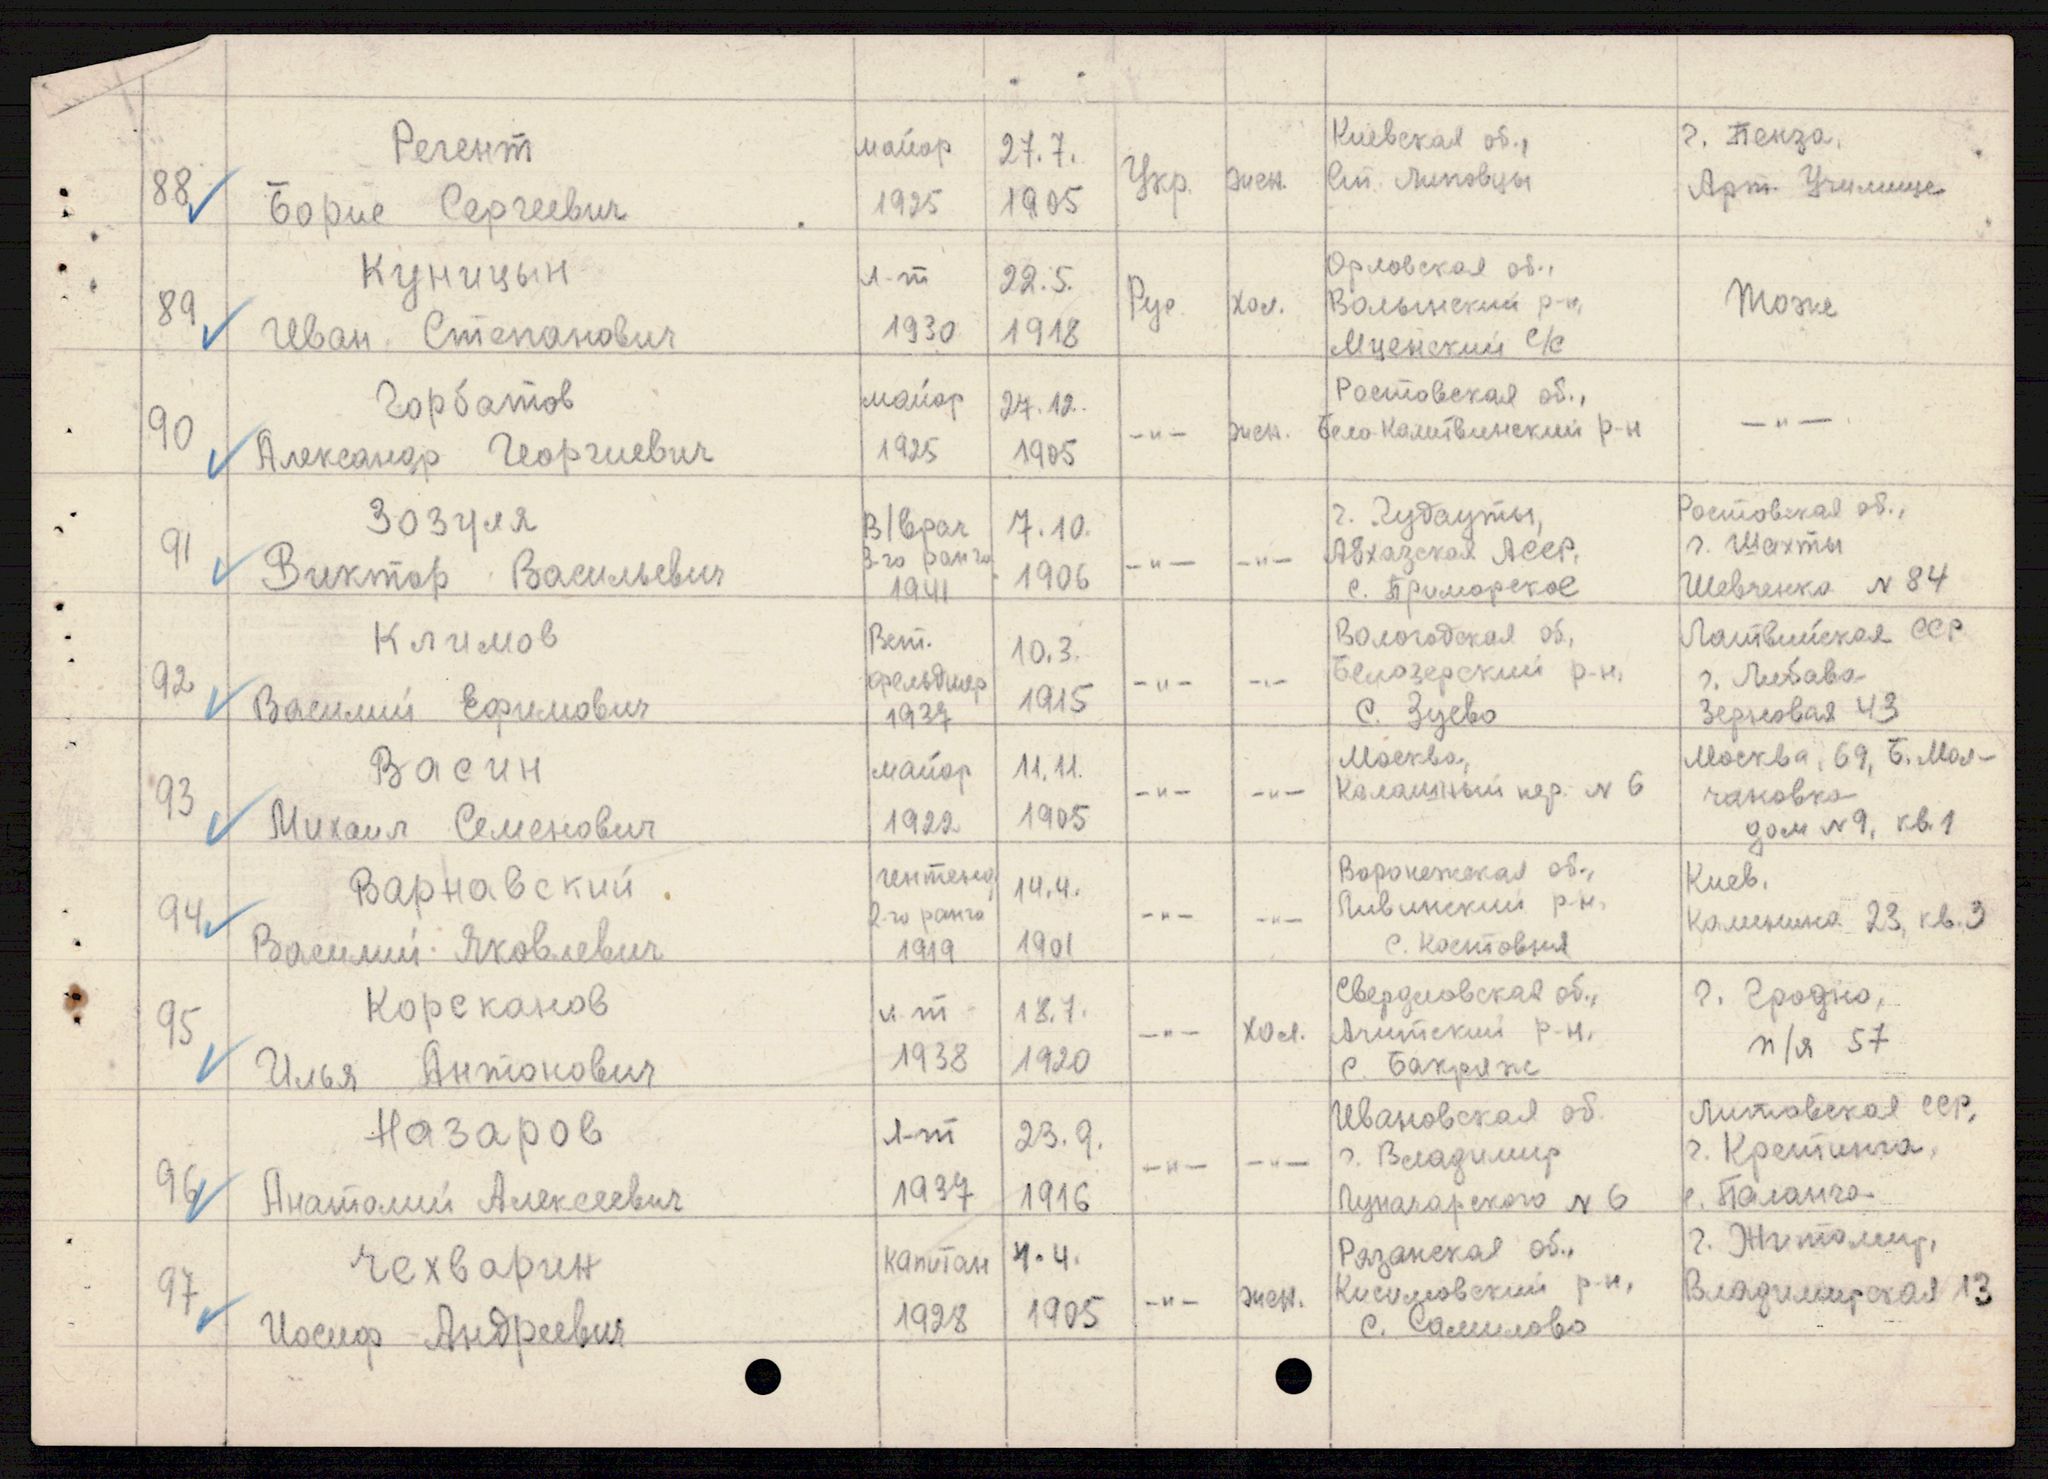 88 Регент майор 27.7. Укр. жен. Киевская об., г. Пенза,
Борис Сергеевич 1925 1905 Ст. Липовцы Арт. Училище
89 Куницын л-т 22.5. Рус. хол. Орловская об., Тоже
Иван Степанович 1930 1918 Волынский р-н,
Мценский с/с
90 Горбатов майор 27.12. -"- жен. Ростовская об., -"-
Александр Георгиевич 1925 1905 Бело-Калитвинский р-н
91 Зозуля В/врач 7.10. -"- -"- г. Гудауты, Ростовская об.,
3-го ранга Абхазская АССР, г. Шахты
Виктор Васильевич 1941 1906 с. Приморское Шевченко N 84
92 Климов Вет. 10.3. -"- -"- Вологодская об, Латвийская ССР
фельдшер Белозерский р-н, г. Либава
Василий Ефимович 1937 1915 С. Зуево Зерновая 43
93 Васин майор 11.11. -"- -"- Москва, Москва, 69, Б. Мол-
Калашный пер. N 6 чановка
Михаил Семенович 1922 1905 дом N 9, кв. 1
94 Варнавский 14.4. -"- -"- Воронежская об., Киев,
2-го ранга р-н, Калинина 23, кв. 3
Василий Яковлевич 1919 1901 С.
95 Корсканов л-т 18.7. -"- хол. Свердловская об., г. Гродно,
Ачитский р-н, п/я 57
Илья Антонович 1938 1920 с. Бакряж
96 Назаров л-т 23.9. -"- -"- Ивановская об. Литовская ССР,
г. Владимир г. Кретинга,
Анатолий Алексеевич 1937 1916 Луначарского N 6 с. Паланга
97 Чехварин капитан 4.4. -"- жен. Рязанская об., г. Житомир,
Касимовский р-н, Владимирская 13
Иосиф Андреевич 1928 1905 С. Самилово